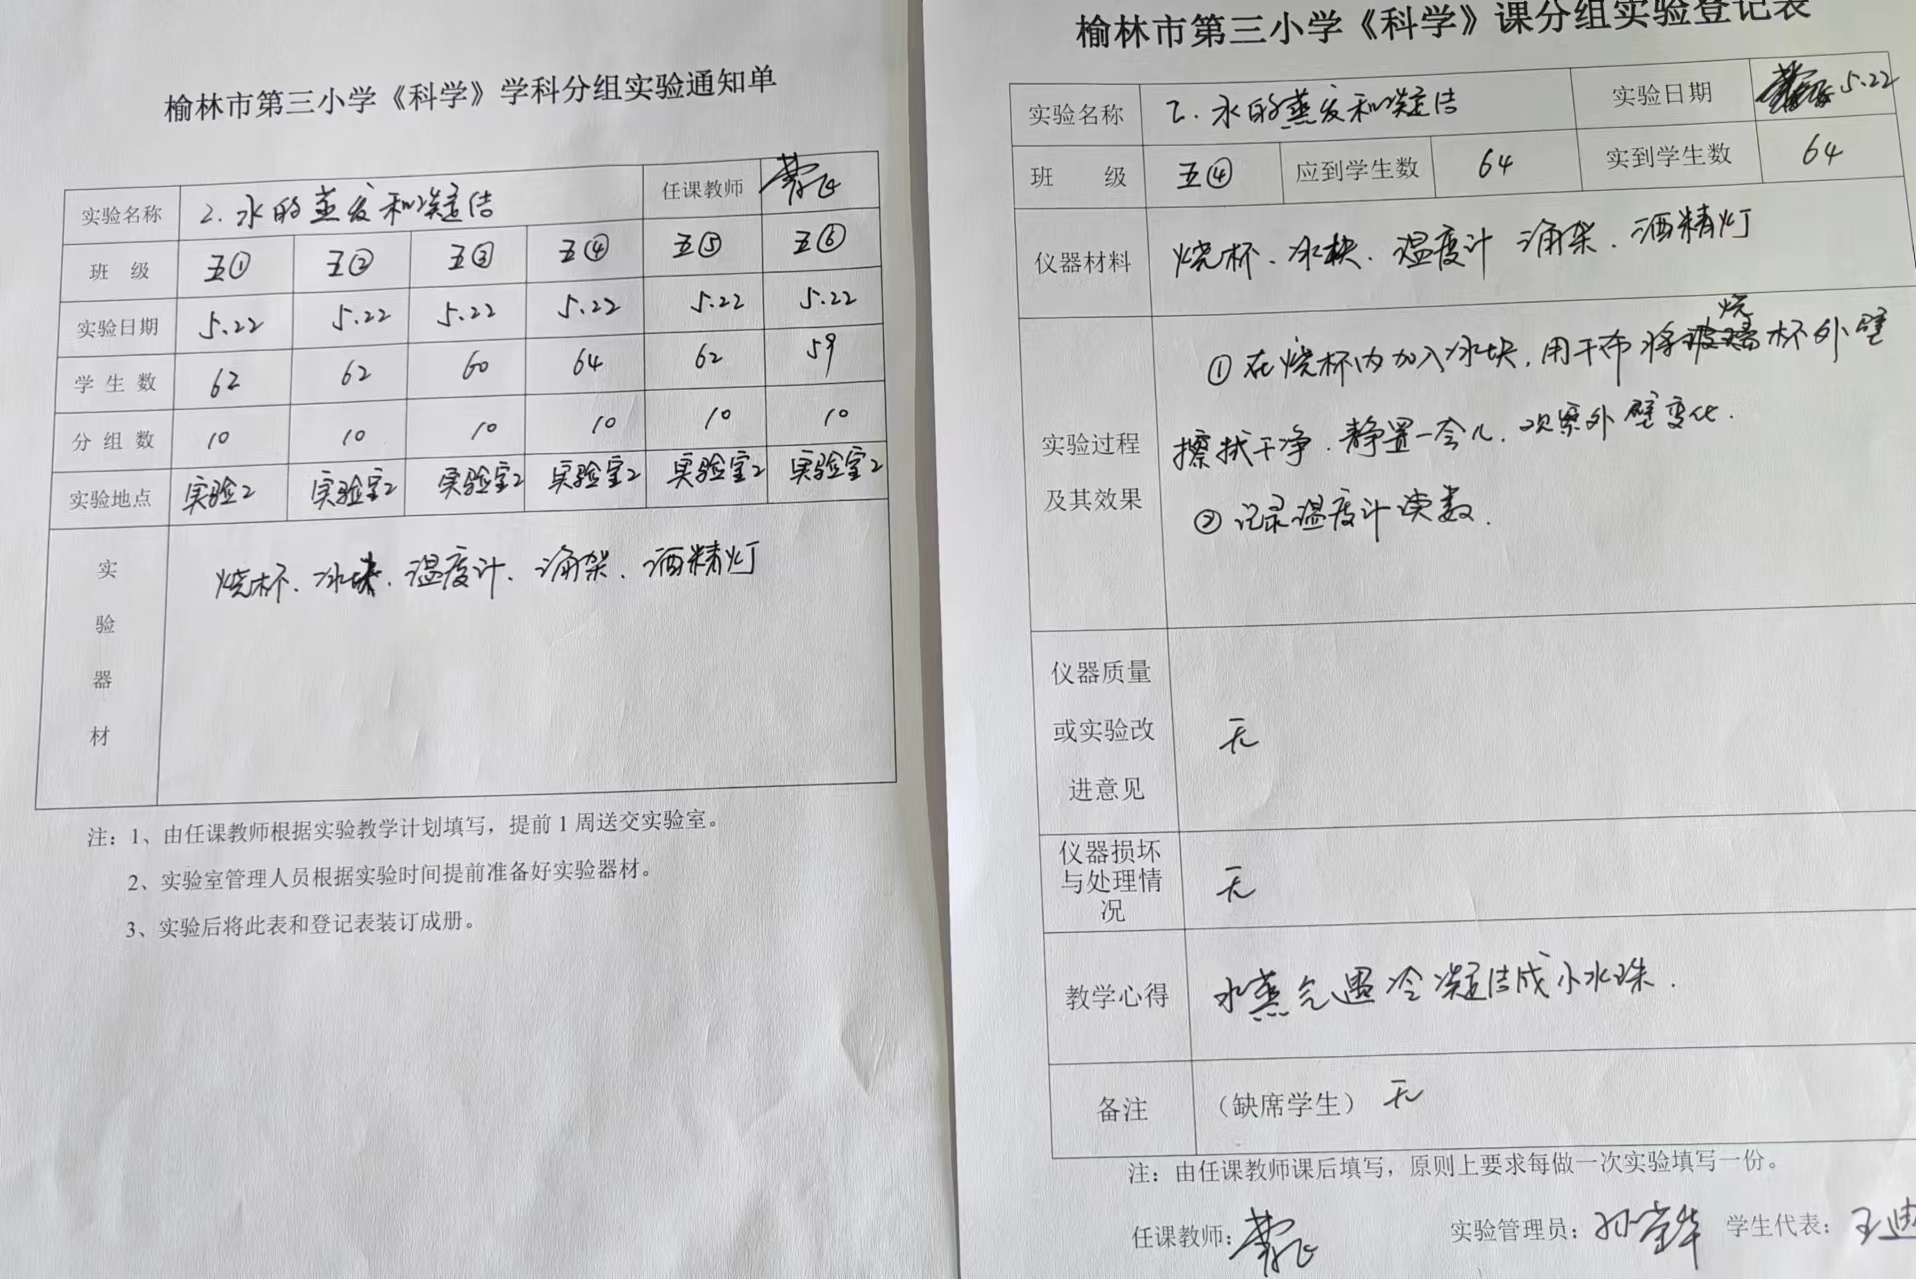 榆林市第三小学《科学》学科分组实验通知单
实验名称 2.水的蒸发和凝结 任课教师
班 级 五① 五② 五③ 五④ 五⑤ 五⑥
实验日期 5.22 5.22 5.22 5.22 5.22 5.22
学生数 62 62 60 64 62 59
分组数 10 10 10 10 10 10
实验地点 实验2 实验室2 实验室2 实验室2 实验室2 实验室2
实验器材 烧杯、冰块、温度计、涌架、酒精灯
注：1、由任课教师根据实验教学计划填写，提前1周送交实验室。
2、实验室管理人员根据实验时间提前准备好实验器材。
3、实验后将此表和登记表装订成册。
榆林市第三小学《科学》课分组实验登记表
实验名称 2.水的蒸发和凝结 实验日期 5.22
班 级 五④ 应到学生数 64 实到学生数 64
仪器材料 烧杯、冰块、温度计 涌架、酒精灯
实验过程
及其效果
①在烧杯内加入冰块，用干布将烧杯外壁
擦拭干净，静置一会儿，观察外壁变化.
②记录温度计读数.
仪器质量
或实验改
进意见
无
仪器损坏
与处理情
况
无
教学心得 水蒸气遇冷凝结成小水珠.
备注 （缺席学生） 无
注：由任课教师课后填写，原则上要求每做一次实验填写一份。
任课教师: 实验管理员: 学生代表: 王迪